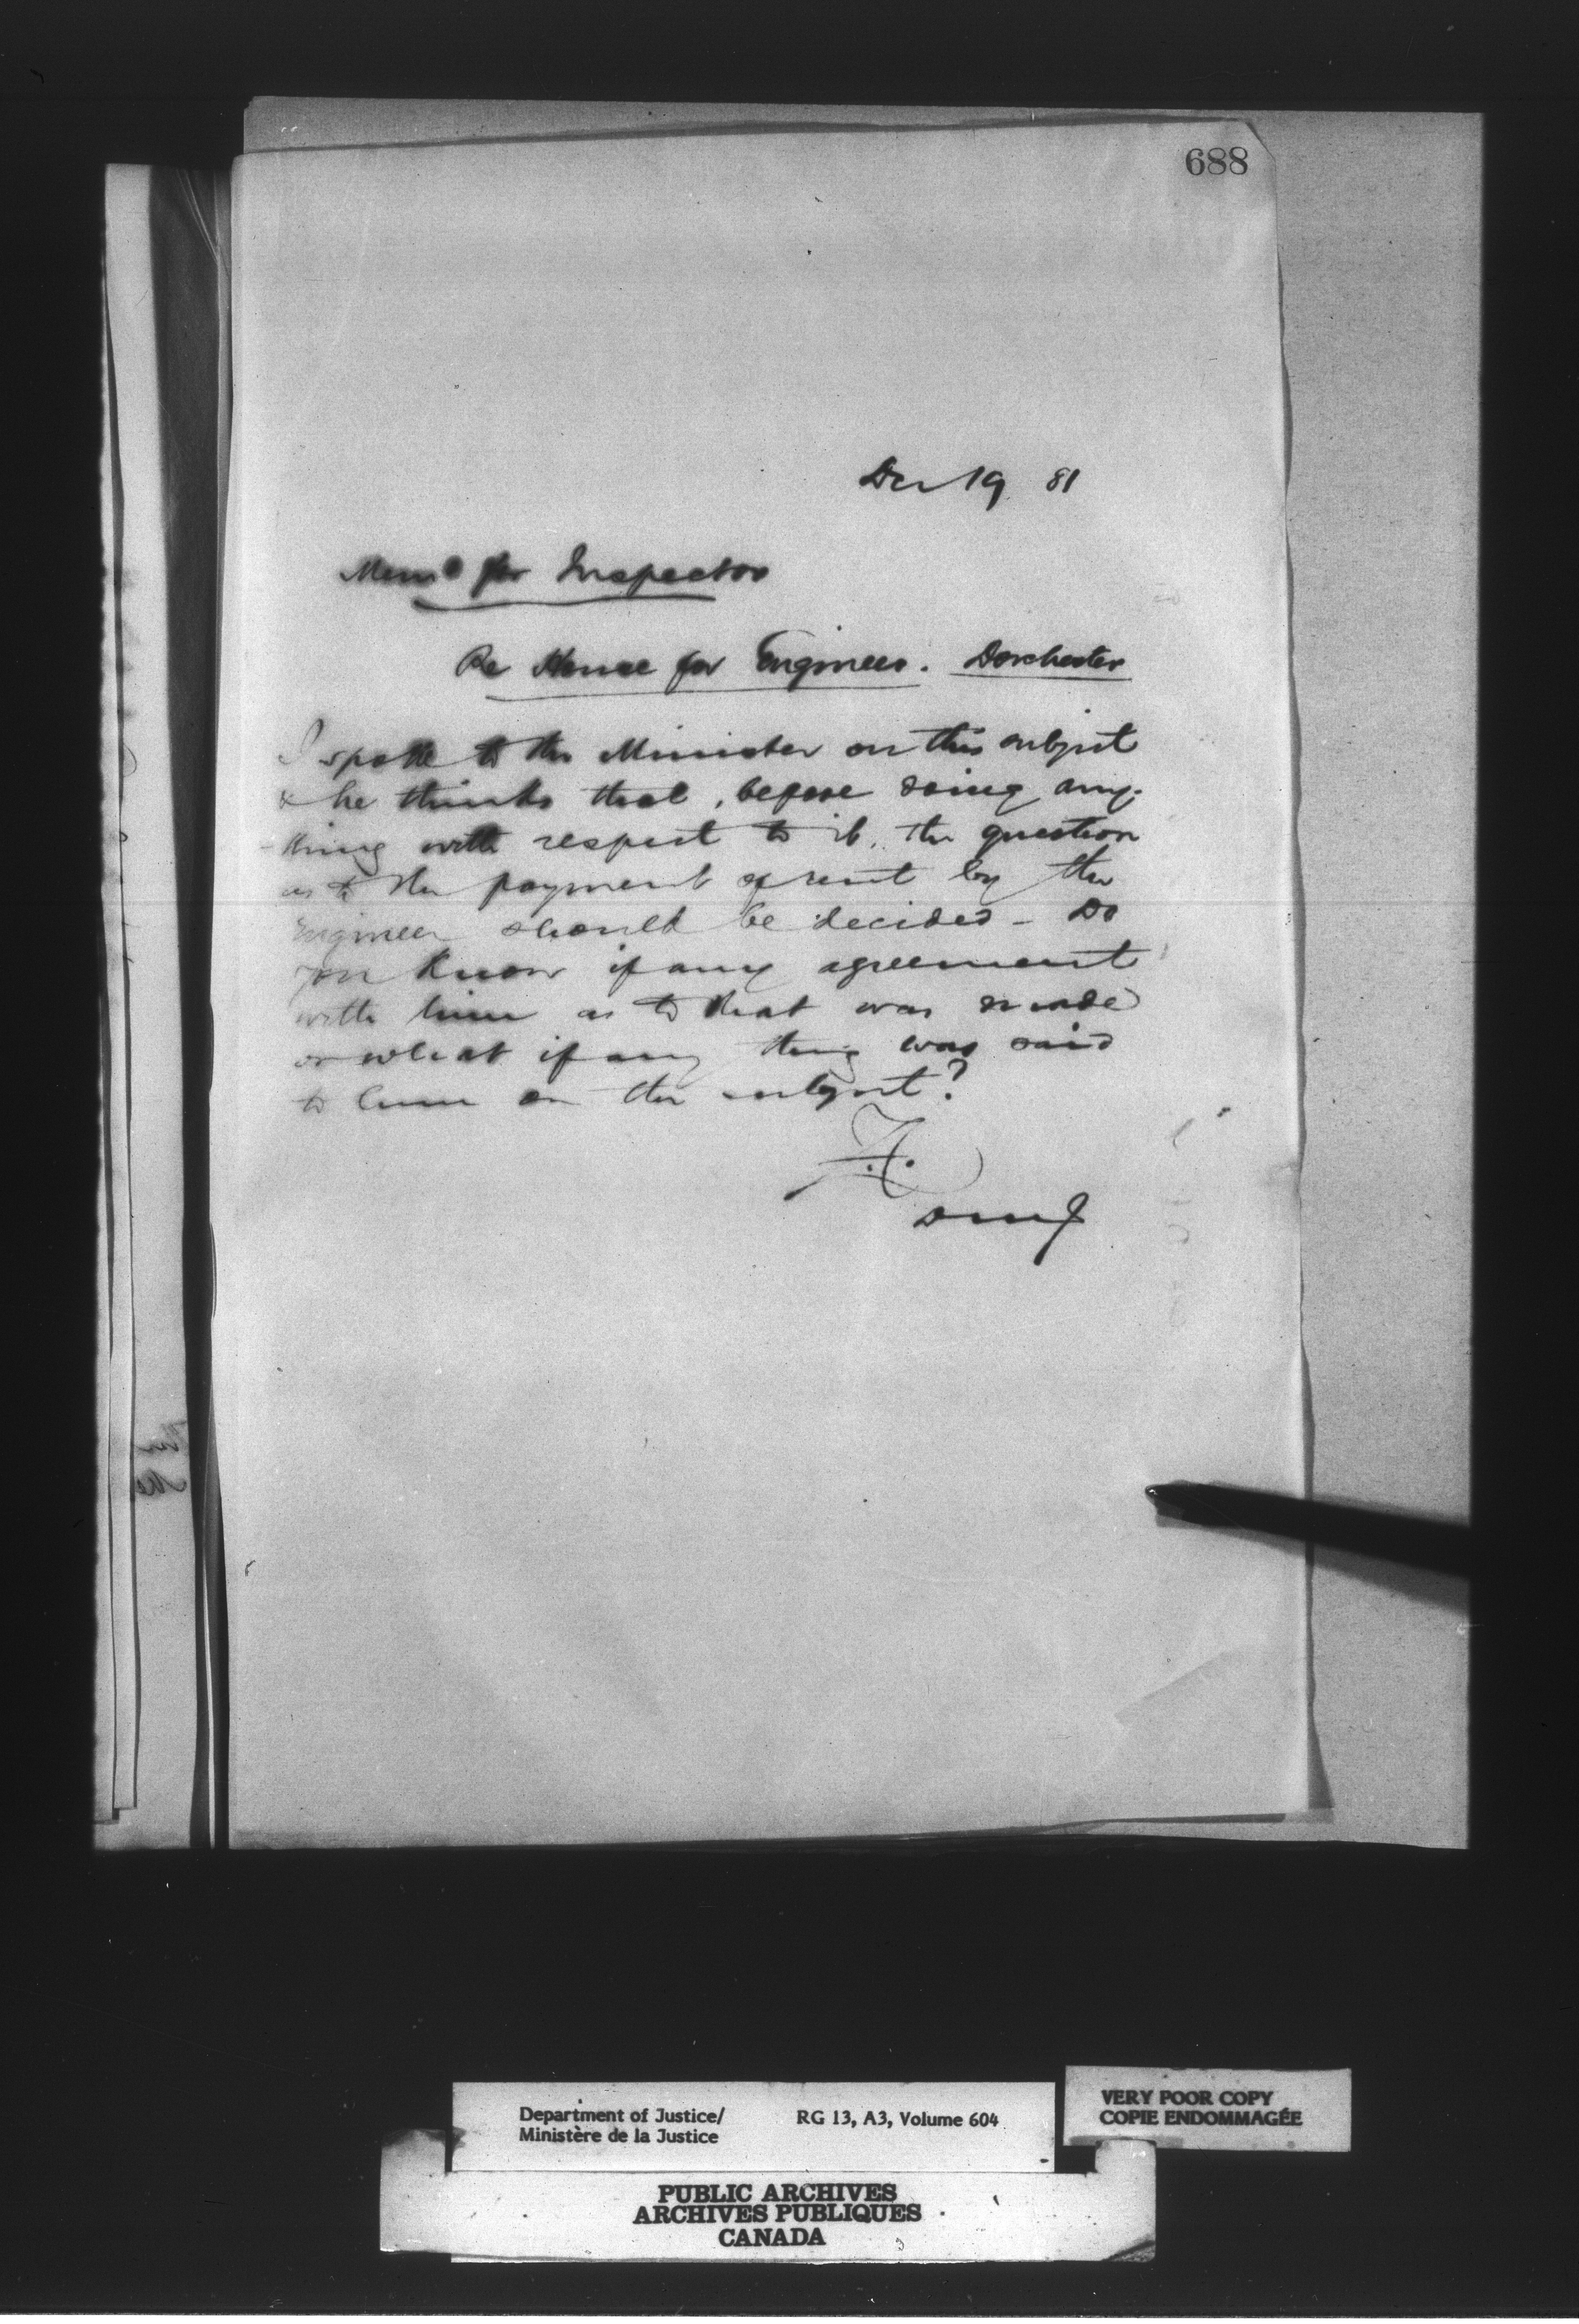 688
Dec 19 81
Memo for Inspector
Re House for Engineer. Dorchester
I spoke to the Minister on this subject
& he thinks that, before doing any-
-thing with respect to it, the question
as to the payment of rent by the
Engineer should be decided - Do
you know if any agreement
with him as to that was made
or what if any thing was said
to him on the subject?
DMJ
Department of Justice/
Ministère de la Justice
RG 13, A3, Volume 604
VERY POOR COPY
COPIE ENDOMMAGÉE
PUBLIC ARCHIVES
ARCHIVES PUBLIQUES
CANADA